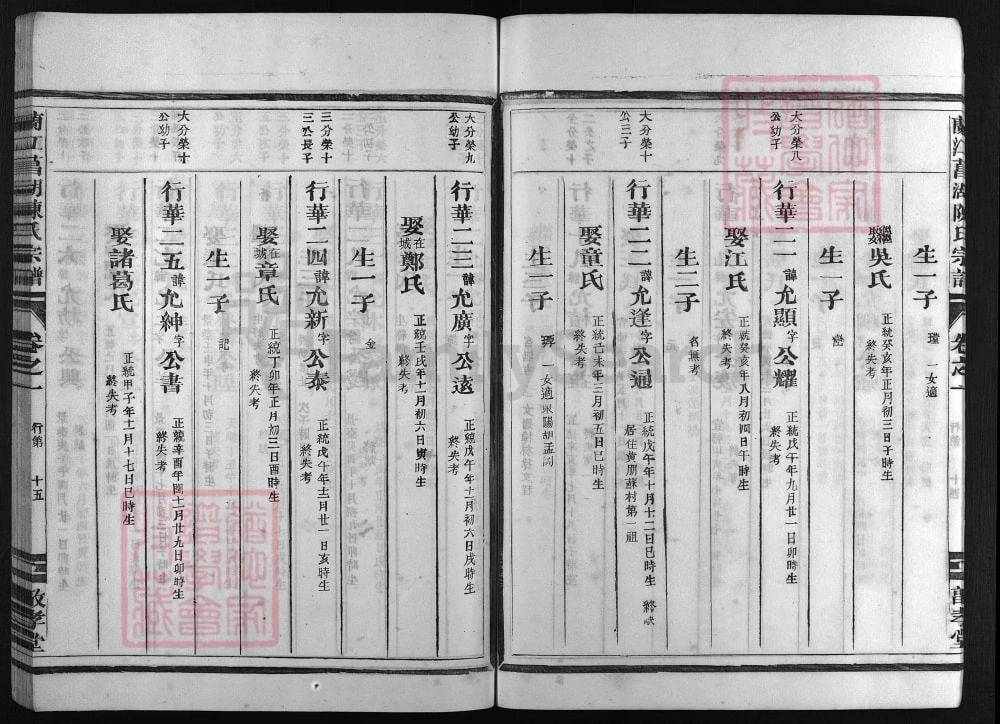 生一子 璒 一女適
繼娶吳氏 正統癸亥年正月初三日子時生 終失考
生一子
大分榮八公幼子
行華二一諱允顯字公耀 正統戊午年九月廿一日卯時生 終失考
娶江氏 正統癸亥年八月初四日午時生 終失考
生二子 名無考
大分榮十公三子
行華二二諱允逢字公通 正統戊午年十月十二日巳時生 終缺 居住黄朋蘇村第一祖
娶童氏 正統己未年三月初五日巳時生 終失考
生一子 一女適東陽胡孟岡
大分榮九公幼子
行華二三諱允廣字公遠 正統戊午年十一月初六日戌時生 終失考
娶在城鄭氏 正統壬戌年十一月初六日寅時生 終失考
生一子
三分榮十三公長子
行華二四諱允新字公泰 正統戊午年十二月廿一日亥時生 終失考
娶在城章氏 正統丁卯年正月初三日酉時生 終失考
生一子 記
大分榮十公幼子
行華二五諱允紳字公書 正統辛酉年閏十一月廿九日卯時生 終失考
娶諸葛氏 正統甲子年十一月十七日巳時生 終失考
蘭江菖湖陳氏宗譜 卷之一 行第 十五 敦孝堂